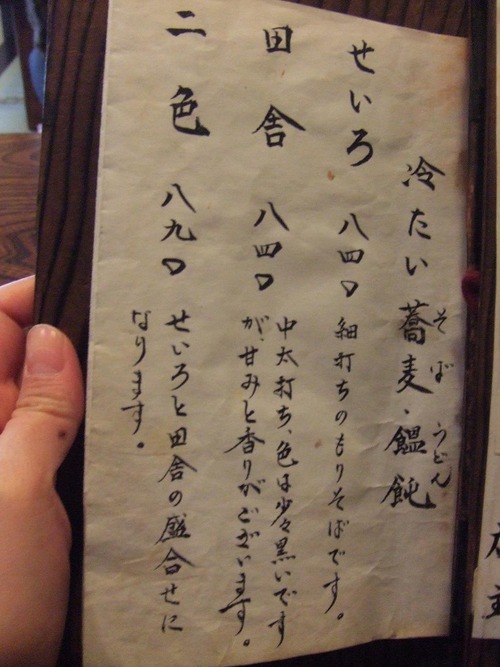 冷たい蕎麦・饂飩
そば うどん
せいろ 八四〇 細打ちのもりそばです。
田舎 八四〇 中太打ち、色は少々黒いです
が、甘みと香りがございます。
二色 八九〇 せいろと田舎の盛合せに
なります。